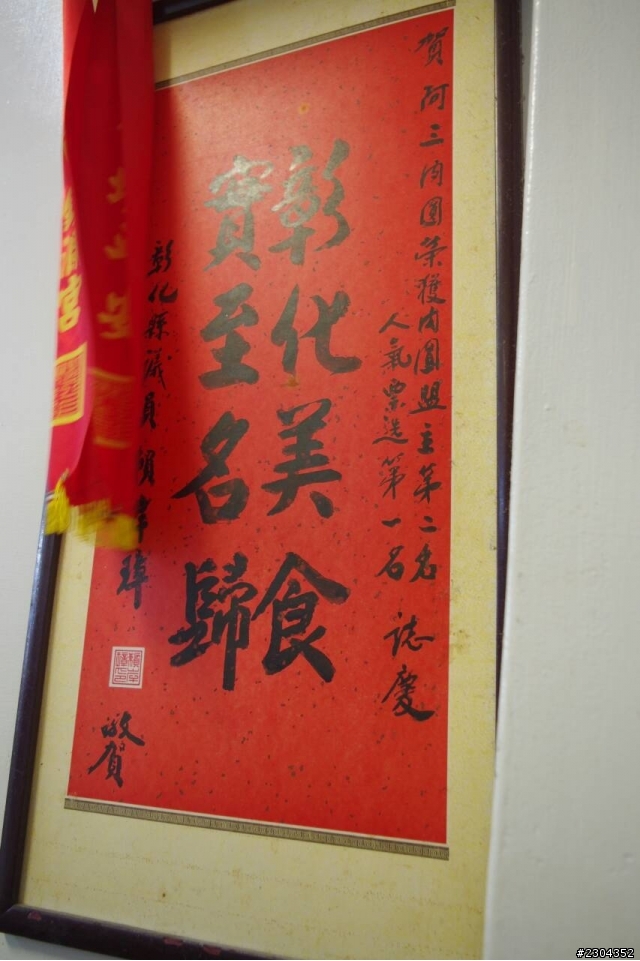 賀阿三肉圓榮獲肉圓盟主第二名
人氣票選第一名
誌慶
彰化美食
實至名歸
彰化縣議員
敬賀
宮
#2304352